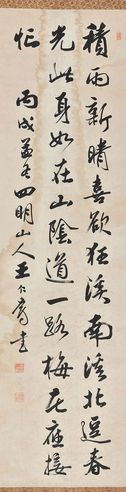 積雨新晴喜欲狂溪南溪北逞春
光此身如在山陰道一路梅花應接
忙
丙戌孟冬四明山人王仁爵書